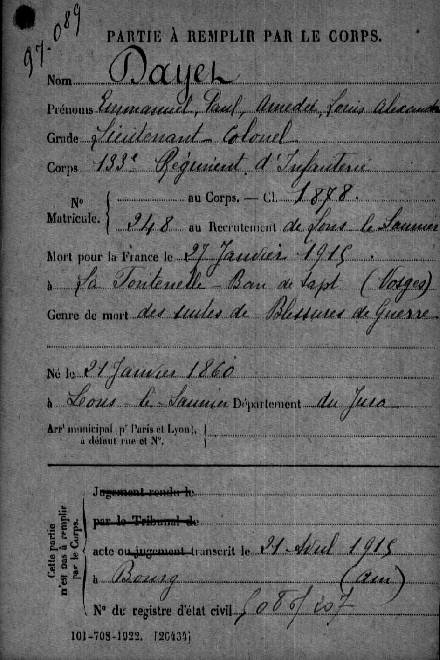 97-089
PARTIE À REMPLIR PAR LE CORPS.
Nom Dayet
Prénoms Emmanuel, Paul, Amedée, Louis Alexandre
Grade Lieutenant-Colonel
Corps 133e Régiment d'Infanterie
No Matricule. au Corps. — Cl. 1878.
248 au Recrutement de Lons le Saunier
Mort pour la France le 27 Janvier 1915.
à La Fontenelle - Ban de Sapt (Vosges)
Genre de mort des suites de Blessures de Guerre
Né le 21 Janvier 1860
à Lons-le-Saunier Département du Jura
Arrt municipal (pr Paris et Lyon),
à défaut rue et No.
Cette partie n'est pas à remplir par le Corps.
Jugement rendu le
par le Tribunal de
acte ou jugement transcrit le 21 Avril 1915
à Bourg (Ain)
No du registre d'état civil
101-708-1922. [26434]